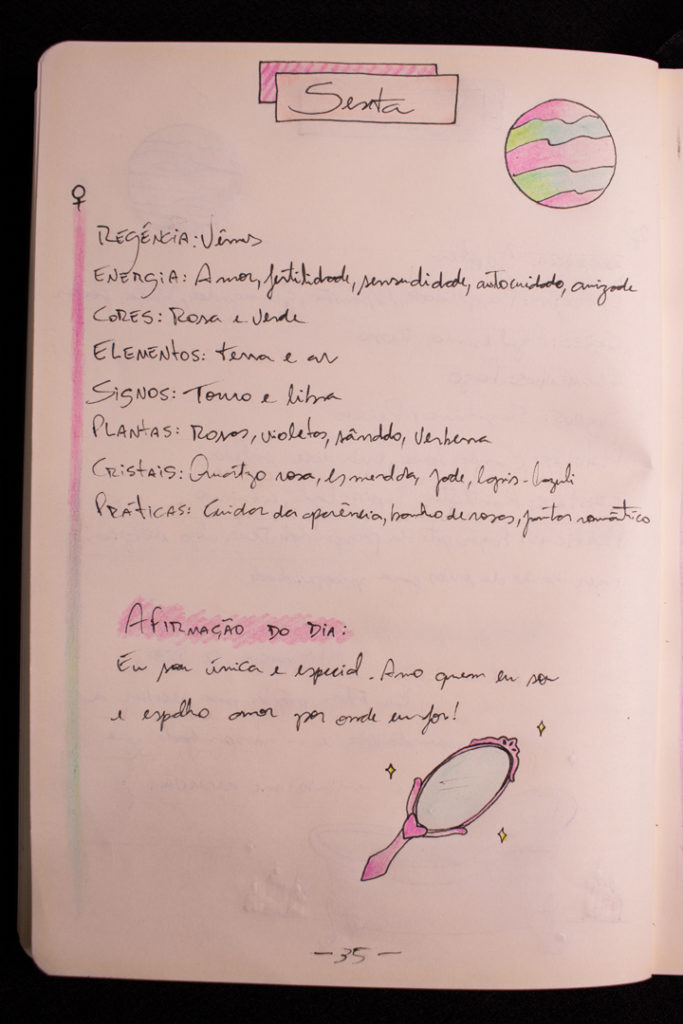 Sexta
♀
REGÊNCIA: Vênus
ENERGIA: Amor, fertilidade, sensualidade, autocuidado, amizade
CORES: Rosa e Verde
ELEMENTOS: terra e ar
SIGNOS: Touro e libra
PLANTAS: Rosas, violetas, sândalo, Verbena
CRISTAIS: Quartzo rosa, esmeralda, jade, lapis-lazuli
PRÁTICAS: Cuidar da aparência, banho de rosas, jantar romântico
AFIRMAÇÃO DO DIA:
Eu sou única e especial. Amo quem eu sou
e espalho amor por onde eu for!
-35-